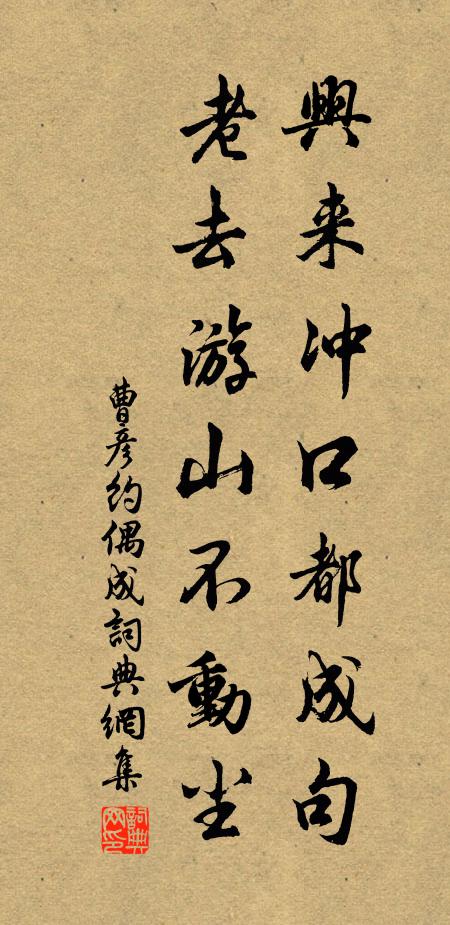 興来冲口都成句
老去游山不動尘
曹彦约偶成詞典網集
詞典网印